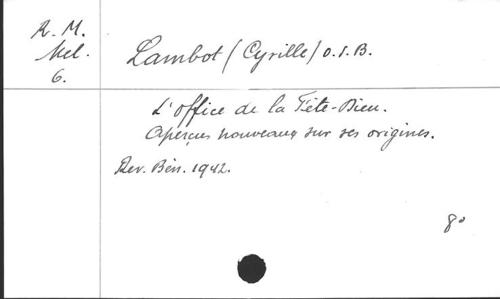 R. M.
Mel.
6.
Lambot (Cyrille) O.S.B.
L'Office de la Fête-Dieu.
Aperçus nouveaux sur ses origines.
Rev. Bén. 1942.
8°